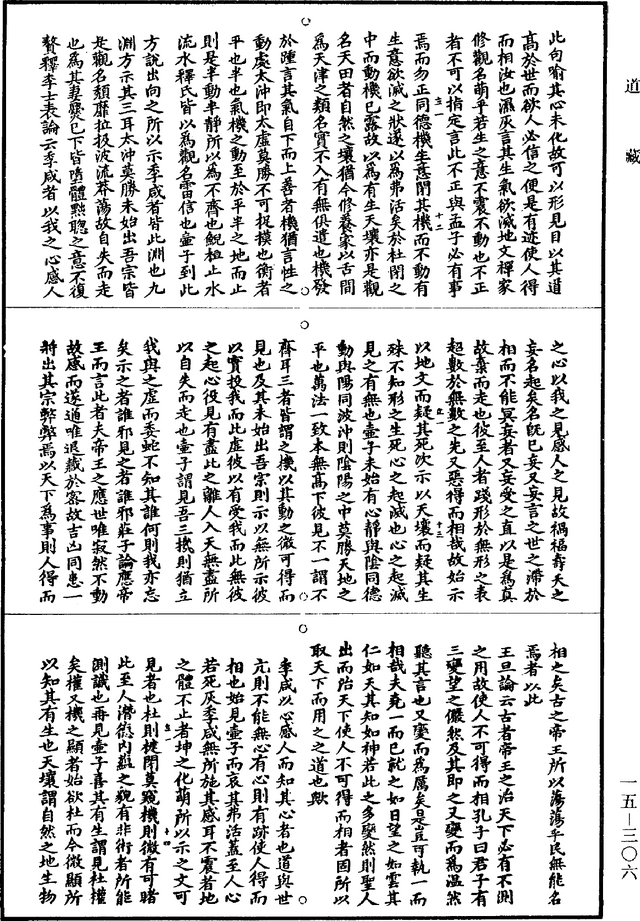 道藏
一五—三〇六
此句喻其心未化故可以形見目以其道
高於世而欲人必信之便是有迹使人得
而相汝也濕灰言其生氣欲滅地文禪家
修觀名萌乎若生之意不震不動也不正
者不可以指定言此不正與孟子必有事
焉而勿正同德機生意閉其機而不動有
生意欲滅之狀遂以為弗活矣於杜閉之
中而動機已露故以為有生天壤亦是觀
名天田者自然之壤猶今修養家以舌間
為天津之類名實不入有無俱遣也機發
於踵言其氣自下而上善者機猶言性之
動處太沖即太虛莫勝不可捉摸也衡者
平也半也氣機之動至於平半之地而止
則是半動半靜所以為不齊也鯢桓止水
流水釋氏皆以為觀名雷信也壺子到此
方說出向之所以示季咸者皆此淵也九
淵方示其三耳太沖莫勝未始出吾宗皆
是觀名頹靡拉扱波流莽蕩故自失而走
也為其妻爨已下皆墮體黜聰之意不復
贅釋李士表論云季咸者以我之心感人
之心以我之見感人之見故禍福壽夭之
妄名起矣名既已妄又妄言之世之滯於
相而不能冥妄者又妄受之直以是為真
故棄而走也彼至人者踐形於無形之表
超數於無數之先又惡得而相哉故始示
以地文而疑其死次示以天壤而疑其生
殊不知形之生死心之起滅也心之起滅
見之有無也壺子未始有心靜與陰同德
動與陽同波沖則陰陽之中莫勝天地之
平也萬法一致本無高下彼見不一謂不
齊耳三者皆謂之機以其動之微可得而
見也及其未始出吾宗則示以無所示彼
以實投我而此虛彼以有受我而此無彼
之起心役見有盡此之離人入天無盡所
以自失而走也壺子謂見吾三機則猶立
我與之虛而委蛇不知其誰何則我亦忘
矣示之者誰邪見之者誰邪莊子論應帝
王而言此者夫帝王之應世唯寂然不動
故感而遂通唯退藏於密故吉凶同患一
將出其宗弊弊焉以天下為事則人得而
相之矣古之帝王所以蕩蕩乎民無能名
焉者以此
王旦論云古者帝王之治天下必有不測
之用故使人不可得而相孔子曰君子有
三變望之儼然及其即之又變而為溫然
聽其言也又變而為厲矣是豈可執一而
相哉夫堯一而已就之如日望之如雲其
仁如天其知如神若此之多變然則聖人
出而治天下使人不可得而相者固所以
取天下而用之之道也歟
季咸以心感人而知其心者也道與世
亢則不能無心有心則有跡使人得而
相也始見壺子而哀其弗活蓋至人心
若死灰季咸無所施其感耳不震者地
之體不止者坤之化萌所以示之文可
見者也杜則揵閉莫窺機則微有可睹
此至人潛德內蘊之觀有非術者所能
測識也再見壺子喜其有生謂見杜權
矣權又機之顯者始欲杜而今微顯所
以知其有生也天壤謂自然之地生物